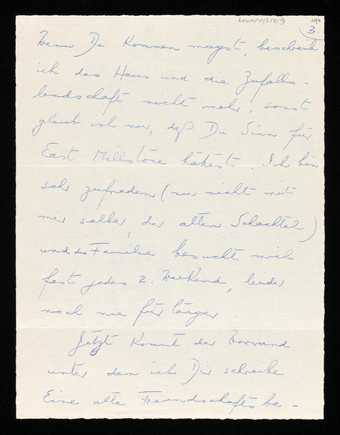 3
Wenn Du kommen magst, beschreib
ich das Haus und die Zufalls-
landschaft nicht mehr, sonst
glaub ich nur, daß Du Sinn für
East Millstone hättest. Ich bin
sehr zufrieden (nur nicht mit
mir selber, der alten Schachtel)
und die Familie besucht mich
fast jedes 2. Weekend, leider
noch nie für länger
Jetzt kommt der Vorwand
unter dem ich Dir schreibe
Eine alte Freundschafts be.-